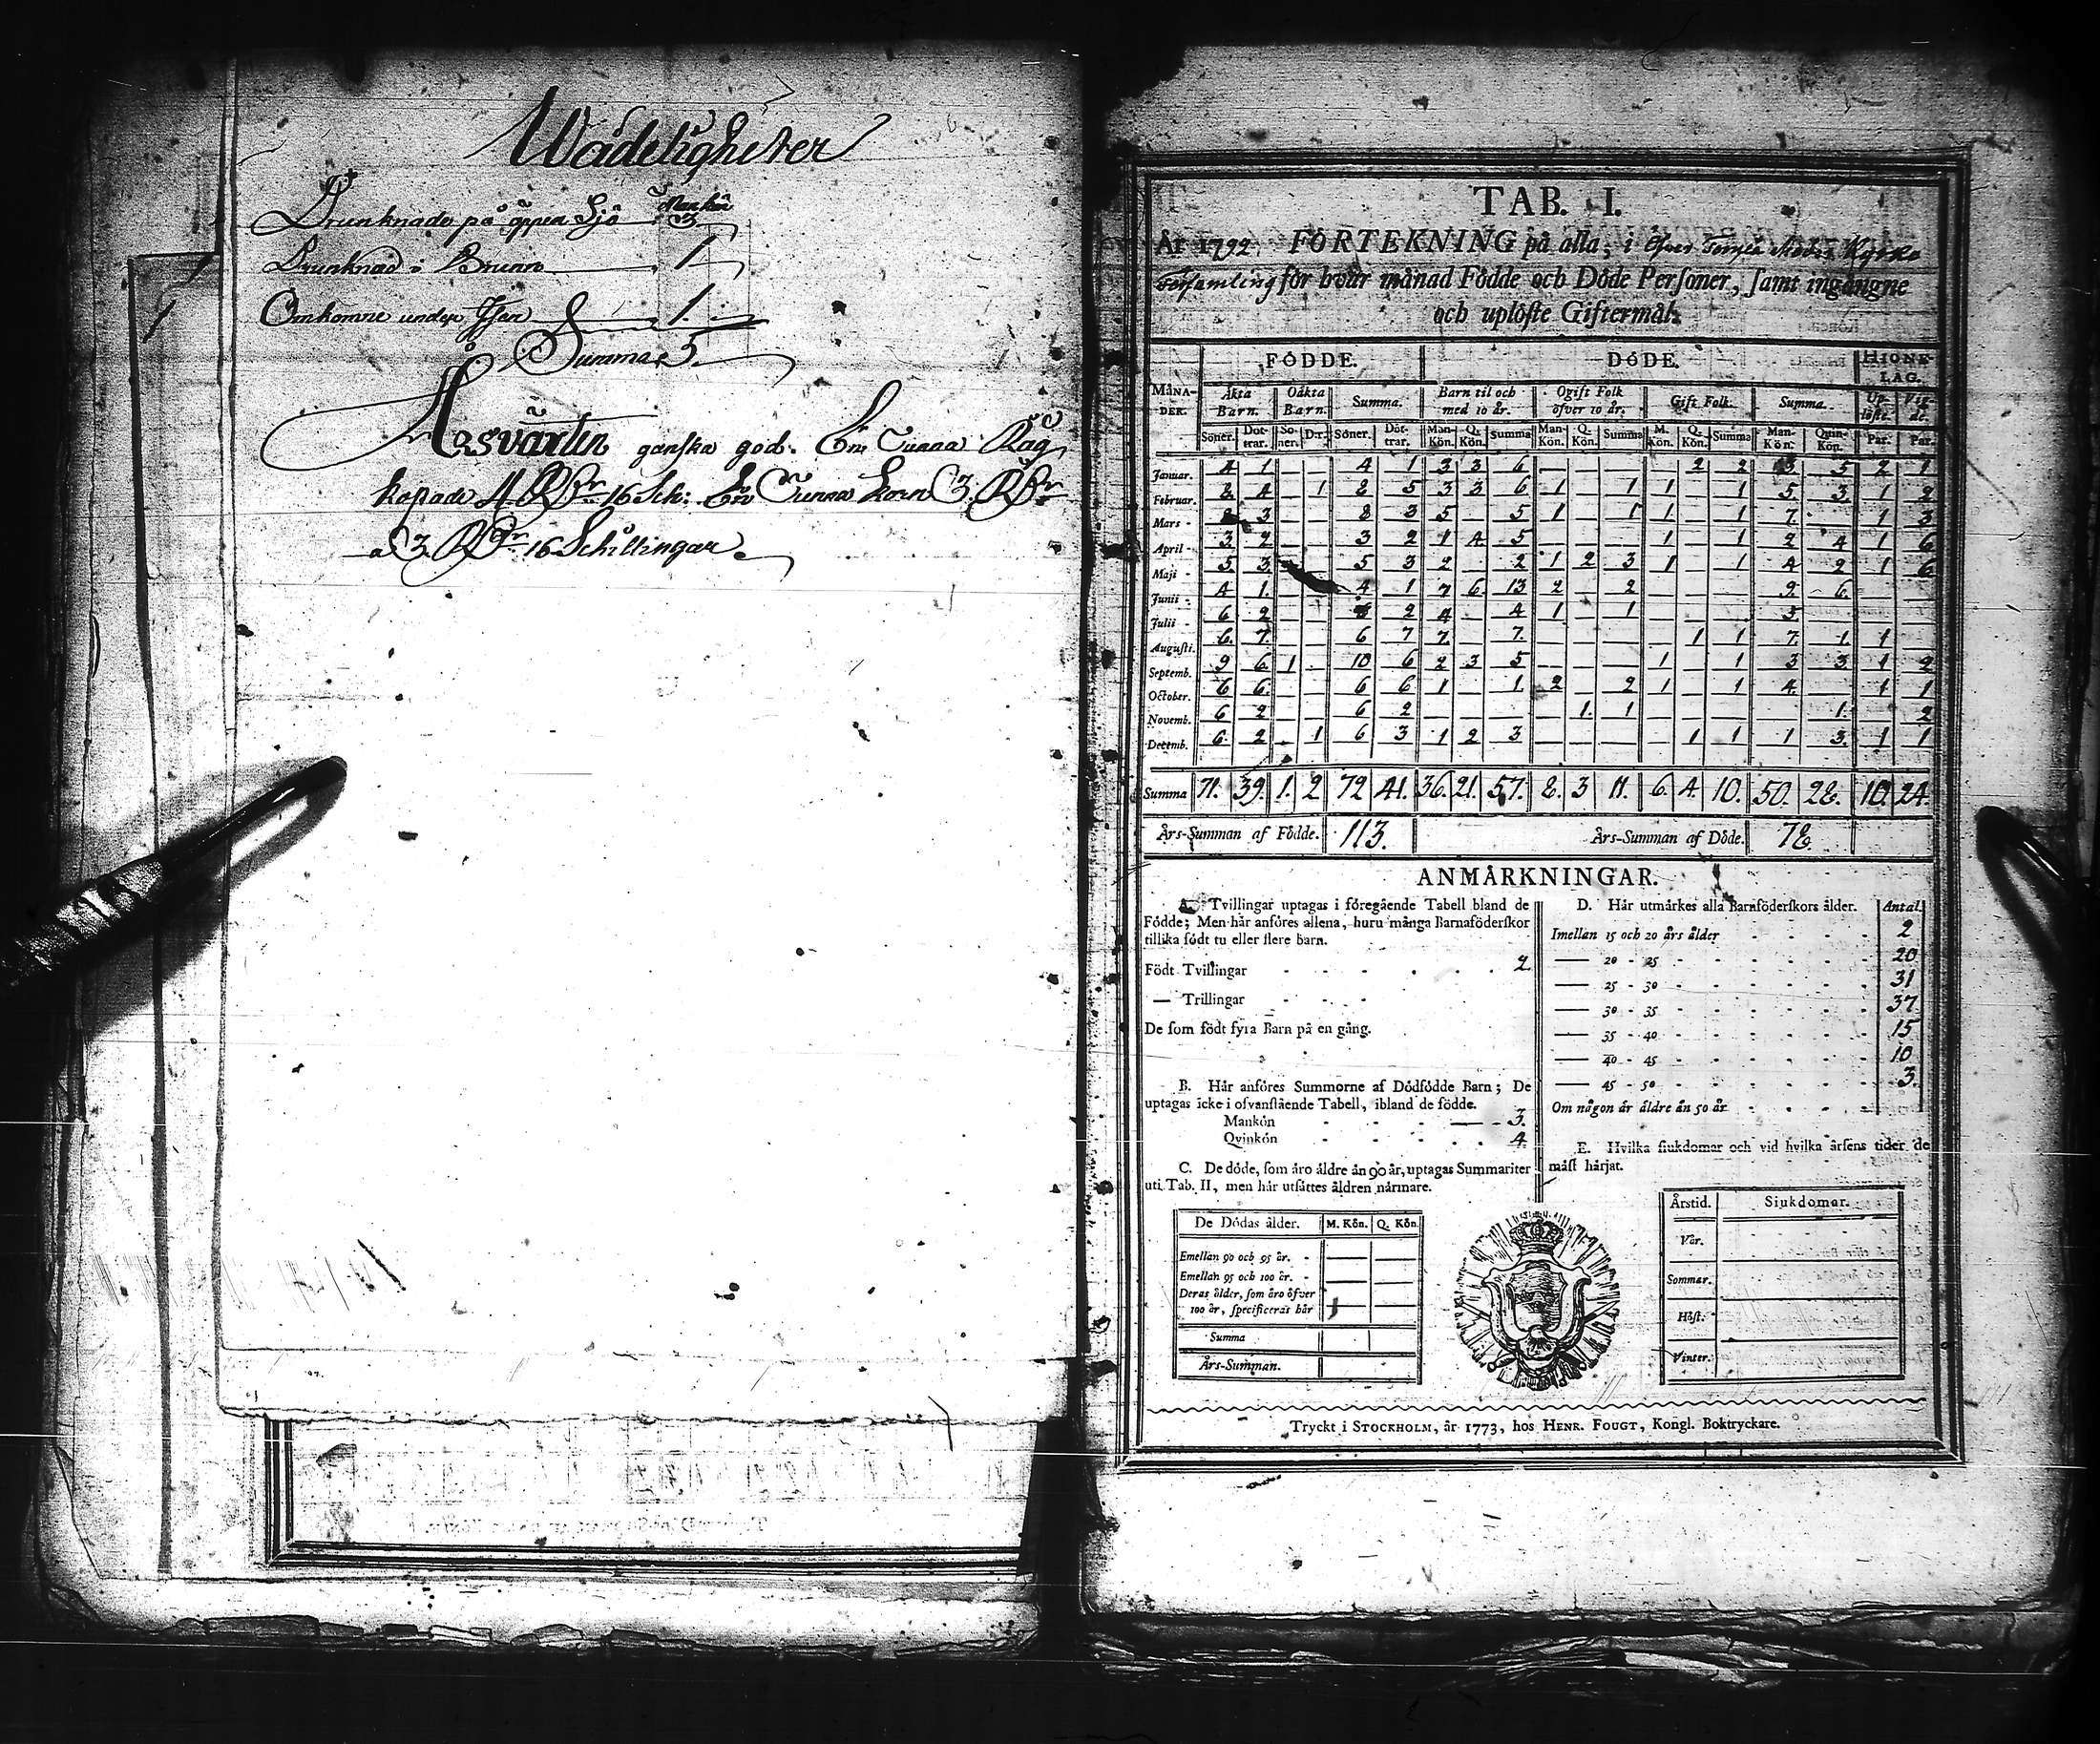 Wådeligheter
Mankön
Drunknade på öppen Sjö 3
Drunknad i Brunn 1
Omkomne under Isen 1.
Summa 5.
Årsväxten ganska god. En Tunna Råg
kostade 4 RDr 16 Sch: En Tunna Korn 3 RDr
a 3 RDr 16 Schillingar.
TAB. I.
År 1792 FÖRTEKNING på alla, i Öfver Torneå Kyrko
Församling för hvar månad Födde och Döde Personer, samt ingångne
och uplöste Giftermål.
MÅNADER. FÖDDE. DÖDE. HIONELAG.
Äkta Barn. Oäkta Barn. Summa. Barn til och med 10 år. Ogift Folk öfver 10 år. Gift Folk. Summa. Uplöste. Vigde.
Söner. Döttrar. Söner. D:r. Söner. Döttrar. Man-Kön. Q. Kön. Summa Man-Kön. Q. Kön. Summa M. Kön. Q. Kön. Summa Man-Kön. Quin-Kön. Par. Par.
Januar. 4 1 — — 4 1 3 3 6 — — — — 2 2 3 5 2 1
Februar. 8 4 — 1 8 5 3 3 6 1 — 1 1 — 1 5 3 1 2
Mars - 8 3 — — 8 3 5 — 5 1 — 1 1 — 1 7 — 1 3
April - 3 2 — — 3 2 1 4 5 — — — 1 — 1 2 4 1 6
Maji - 5 3 5 3 2 — 2 1 2 3 1 — 1 4 2 1 6
Junii - 4 1 4 1 7 6 13 2 — 2 — — — 9 6 — —
Julii - 6 2 — — 6 2 4 — 4 1 — 1 — — — 5 — — —
Augusti. 6 7 — — 6 7 7 — 7 — — — — 1 1 7 1 1 —
Septemb. 9 6 1 — 10 6 2 3 5 — — — 1 — 1 3 3 1 2
October. 6 6 — — 6 6 1 — 1 2 — 2 1 — 1 4 — 1 1
Novemb. 6 2 — — 6 2 — — — — 1 1 — — — — 1 — 2
Decemb. 6 2 — 1 6 3 1 2 3 — — — — 1 1 1 3 1 1
Summa 71. 39. 1. 2 72 41. 36. 21. 57. 8. 3 11. 6. 4. 10. 50. 28. 10. 24.
Års-Summan af Födde. 113. Års-Summan af Döde. 78
ANMÄRKNINGAR.
A. Tvillingar uptagas i föregående Tabell bland de
Födde; Men här anföres allena, huru många Barnaföderskor
tillika födt tu eller flere barn.
Födt Tvillingar - - - - - 2
— Trillingar - - - -
De som födt fyra Barn på en gång.
B. Här anföres Summorne af Dödfödde Barn; De
uptagas icke i ofvanstående Tabell, ibland de födde.
Mankön - - - 3.
Qvinkön - - - 4.
C. De döde, som äro äldre än 90 år, uptagas Summariter
uti Tab. II, men här utsättes åldren närmare.
De Dödas ålder. M. Kön. Q. Kön.
Emellan 90 och 95 år. - — —
Emellan 95 och 100 år. - — —
Deras ålder, som äro öfver
100 år, specificeras här — —
Summa
Års-Summan.
D. Här utmärkes alla Barnföderskors ålder. Antal
Imellan 15 och 20 års ålder - - - - 2
— 20 - 25 - - - - 20
— 25 - 30 - - - - 31
— 30 - 35 - - - - 37
— 35 - 40 - - - - 15
— 40 - 45 - - - - 10
— 45 - 50 - - - - 3.
Om någon är äldre än 50 år - - - -
E. Hvilka siukdomar och vid hvilka årsens tider de
mäst härjat.
Årstid. Siukdomar.
Vår.
Sommar.
Höst.
Vinter.
Tryckt i STOCKHOLM, år 1773, hos HENR. FOUGT, Kongl. Boktryckare.